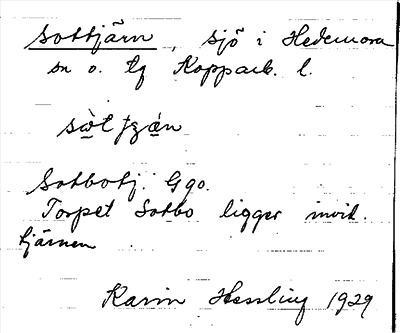 Sottjärn, sjö i Hedemora
sn o. tg Kopparb. l.
Sotbotj. Ggo.
Torpet Sotbo ligger invid.
tjärnen
Karin Hessling 1929